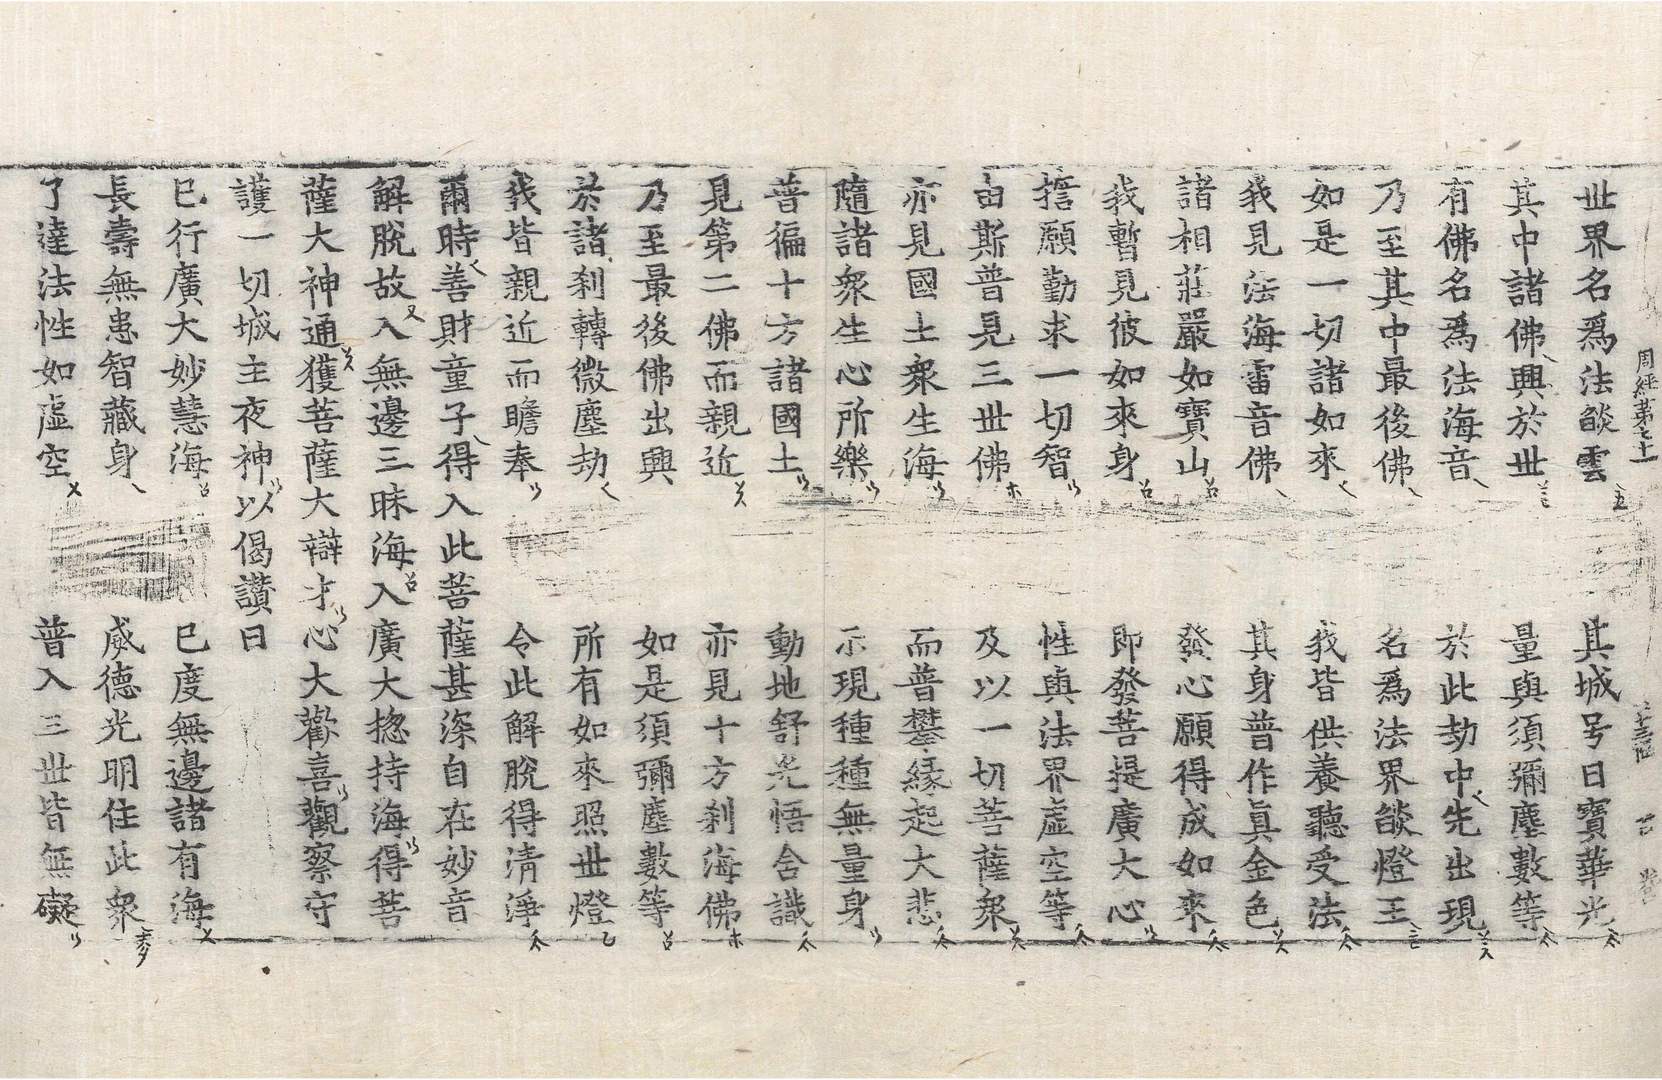 周經第七十一
世界名爲法燄雲　其城号曰寶華光
其中諸佛興於世　量與須彌塵數等
有佛名爲法海音　於此劫中先出現
乃至其中最後佛　名爲法界燄燈王
如是一切諸如來　我皆供養聽受法
我見法海雷音佛　其身普作真金色
諸相莊嚴如寶山　發心願得成如來
我暫見彼如來身　即發菩提廣大心
誓願勤求一切智　性與法界虛空等
由斯普見三世佛　及以一切菩薩衆
亦見國土衆生海　而普攀緣起大悲
隨諸衆生心所樂　示現種種無量身
普徧十方諸國土　動地舒光悟含識
見第二佛而親近　亦見十方刹海佛
乃至最後佛出興　如是須彌塵數等
於諸刹轉微塵劫　所有如來照世燈
我皆親近而瞻奉　令此解脫得清淨
爾時善財童子得入此菩薩甚深自在妙音
解脫故入無邊三昧海入廣大揔持海得菩
薩大神通獲菩薩大辯才心大歡喜觀察守
護一切城主夜神以偈讚曰
已行廣大妙慧海　已度無邊諸有海
長壽無患智藏身　威德光明住此衆
了達法性如虛空　普入三世皆無礙